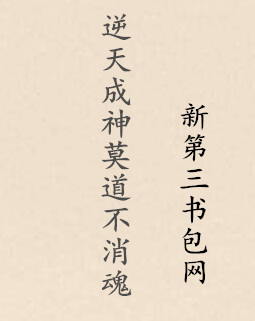 逆天成神莫道不消魂
新第三书包网